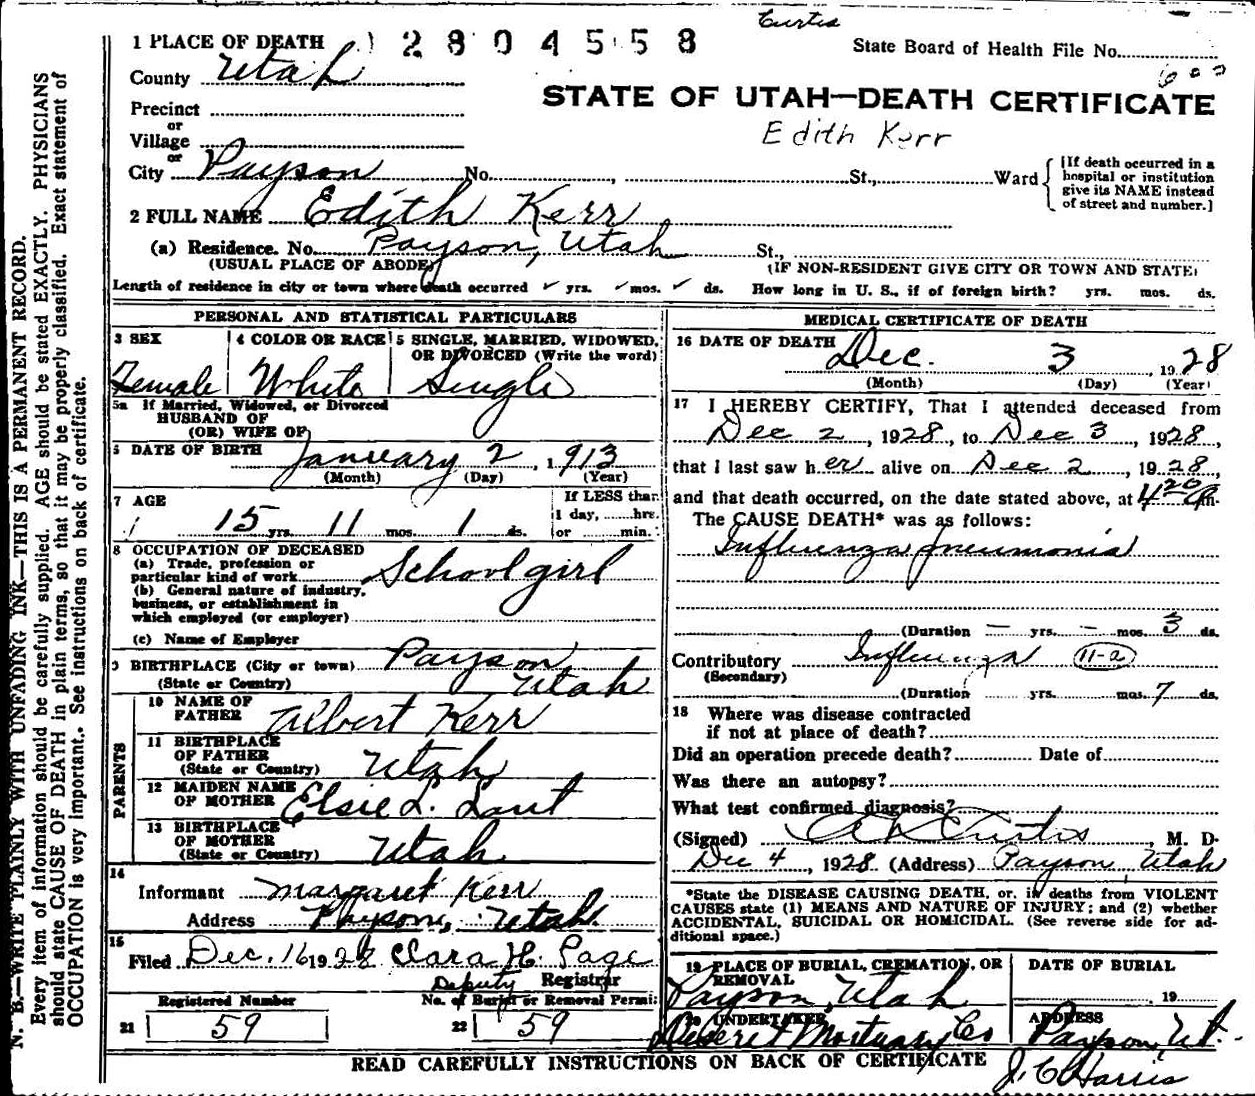 Curtis
1 PLACE OF DEATH 2804558 State Board of Health File No.
County Utah
STATE OF UTAH—DEATH CERTIFICATE
Precinct
or
Village
Edith Kerr
or
City Payson No. , St., Ward
[If death occurred in a
hospital or institution
give its NAME instead
of street and number.]
2 FULL NAME Edith Kerr
(a) Residence. No. Payson, Utah St.,
(USUAL PLACE OF ABODE) (IF NON-RESIDENT GIVE CITY OR TOWN AND STATE)
Length of residence in city or town where death occurred ✓ yrs. ✓ mos. ✓ ds. How long in U. S., if of foreign birth? yrs. mos. ds.
PERSONAL AND STATISTICAL PARTICULARS
3 SEX 4 COLOR OR RACE 5 SINGLE, MARRIED, WIDOWED,
OR DIVORCED (Write the word)
Female White Single
5a If Married, Widowed, or Divorced
HUSBAND OF
(OR) WIFE OF
6 DATE OF BIRTH January 2, 1913
(Month) (Day) (Year)
7 AGE If LESS than
1 day, hrs.
15 yrs. 11 mos. 1 ds. or min.
8 OCCUPATION OF DECEASED
(a) Trade, profession or
particular kind of work School girl
(b) General nature of industry,
business, or establishment in
which employed (or employer)
(c) Name of Employer
9 BIRTHPLACE (City or town) Payson
(State or Country) Utah
PARENTS
10 NAME OF
FATHER Albert Kerr
11 BIRTHPLACE
OF FATHER
(State or Country) Utah
12 MAIDEN NAME
OF MOTHER Elsie L. Lant
13 BIRTHPLACE
OF MOTHER
(State or Country) Utah
14
Informant Margaret Kerr
Address Payson, Utah
15
Filed Dec. 16 1928 Clara H. Page
Deputy Registrar
Registered Number No. of Burial or Removal Permit
21 59 22 59
MEDICAL CERTIFICATE OF DEATH
16 DATE OF DEATH Dec. 3, 1928
(Month) (Day) (Year)
17 I HEREBY CERTIFY, That I attended deceased from
Dec 2, 1928, to Dec 3, 1928,
that I last saw her alive on Dec 2, 1928,
and that death occurred, on the date stated above, at 4 20 Pm.
The CAUSE DEATH* was as follows:
Influenza pneumonia
(Duration — yrs. — mos. 3 ds.
Contributory Influenza 11-a
(Secondary)
(Duration yrs. mos. 7 ds.
18 Where was disease contracted
if not at place of death?
Did an operation precede death? Date of
Was there an autopsy?
What test confirmed diagnosis?
(Signed) Curtis, M. D.
Dec 4, 1928 (Address) Payson, Utah
*State the DISEASE CAUSING DEATH, or, in deaths from VIOLENT
CAUSES state (1) MEANS AND NATURE OF INJURY; and (2) whether
ACCIDENTAL, SUICIDAL OR HOMICIDAL. (See reverse side for ad-
ditional space.)
19 PLACE OF BURIAL, CREMATION, OR
REMOVAL
Payson, Utah
DATE OF BURIAL
19
20 UNDERTAKER
Deseret Mortuary Co
ADDRESS
Payson, Ut.
J. C. Harris
READ CAREFULLY INSTRUCTIONS ON BACK OF CERTIFICATE
N. B.—WRITE PLAINLY WITH UNFADING INK—THIS IS A PERMANENT RECORD.
Every item of information should be carefully supplied. AGE should be stated EXACTLY. PHYSICIANS
should state CAUSE OF DEATH in plain terms, so that it may be properly classified. Exact statement of
OCCUPATION is very important. See instructions on back of certificate.